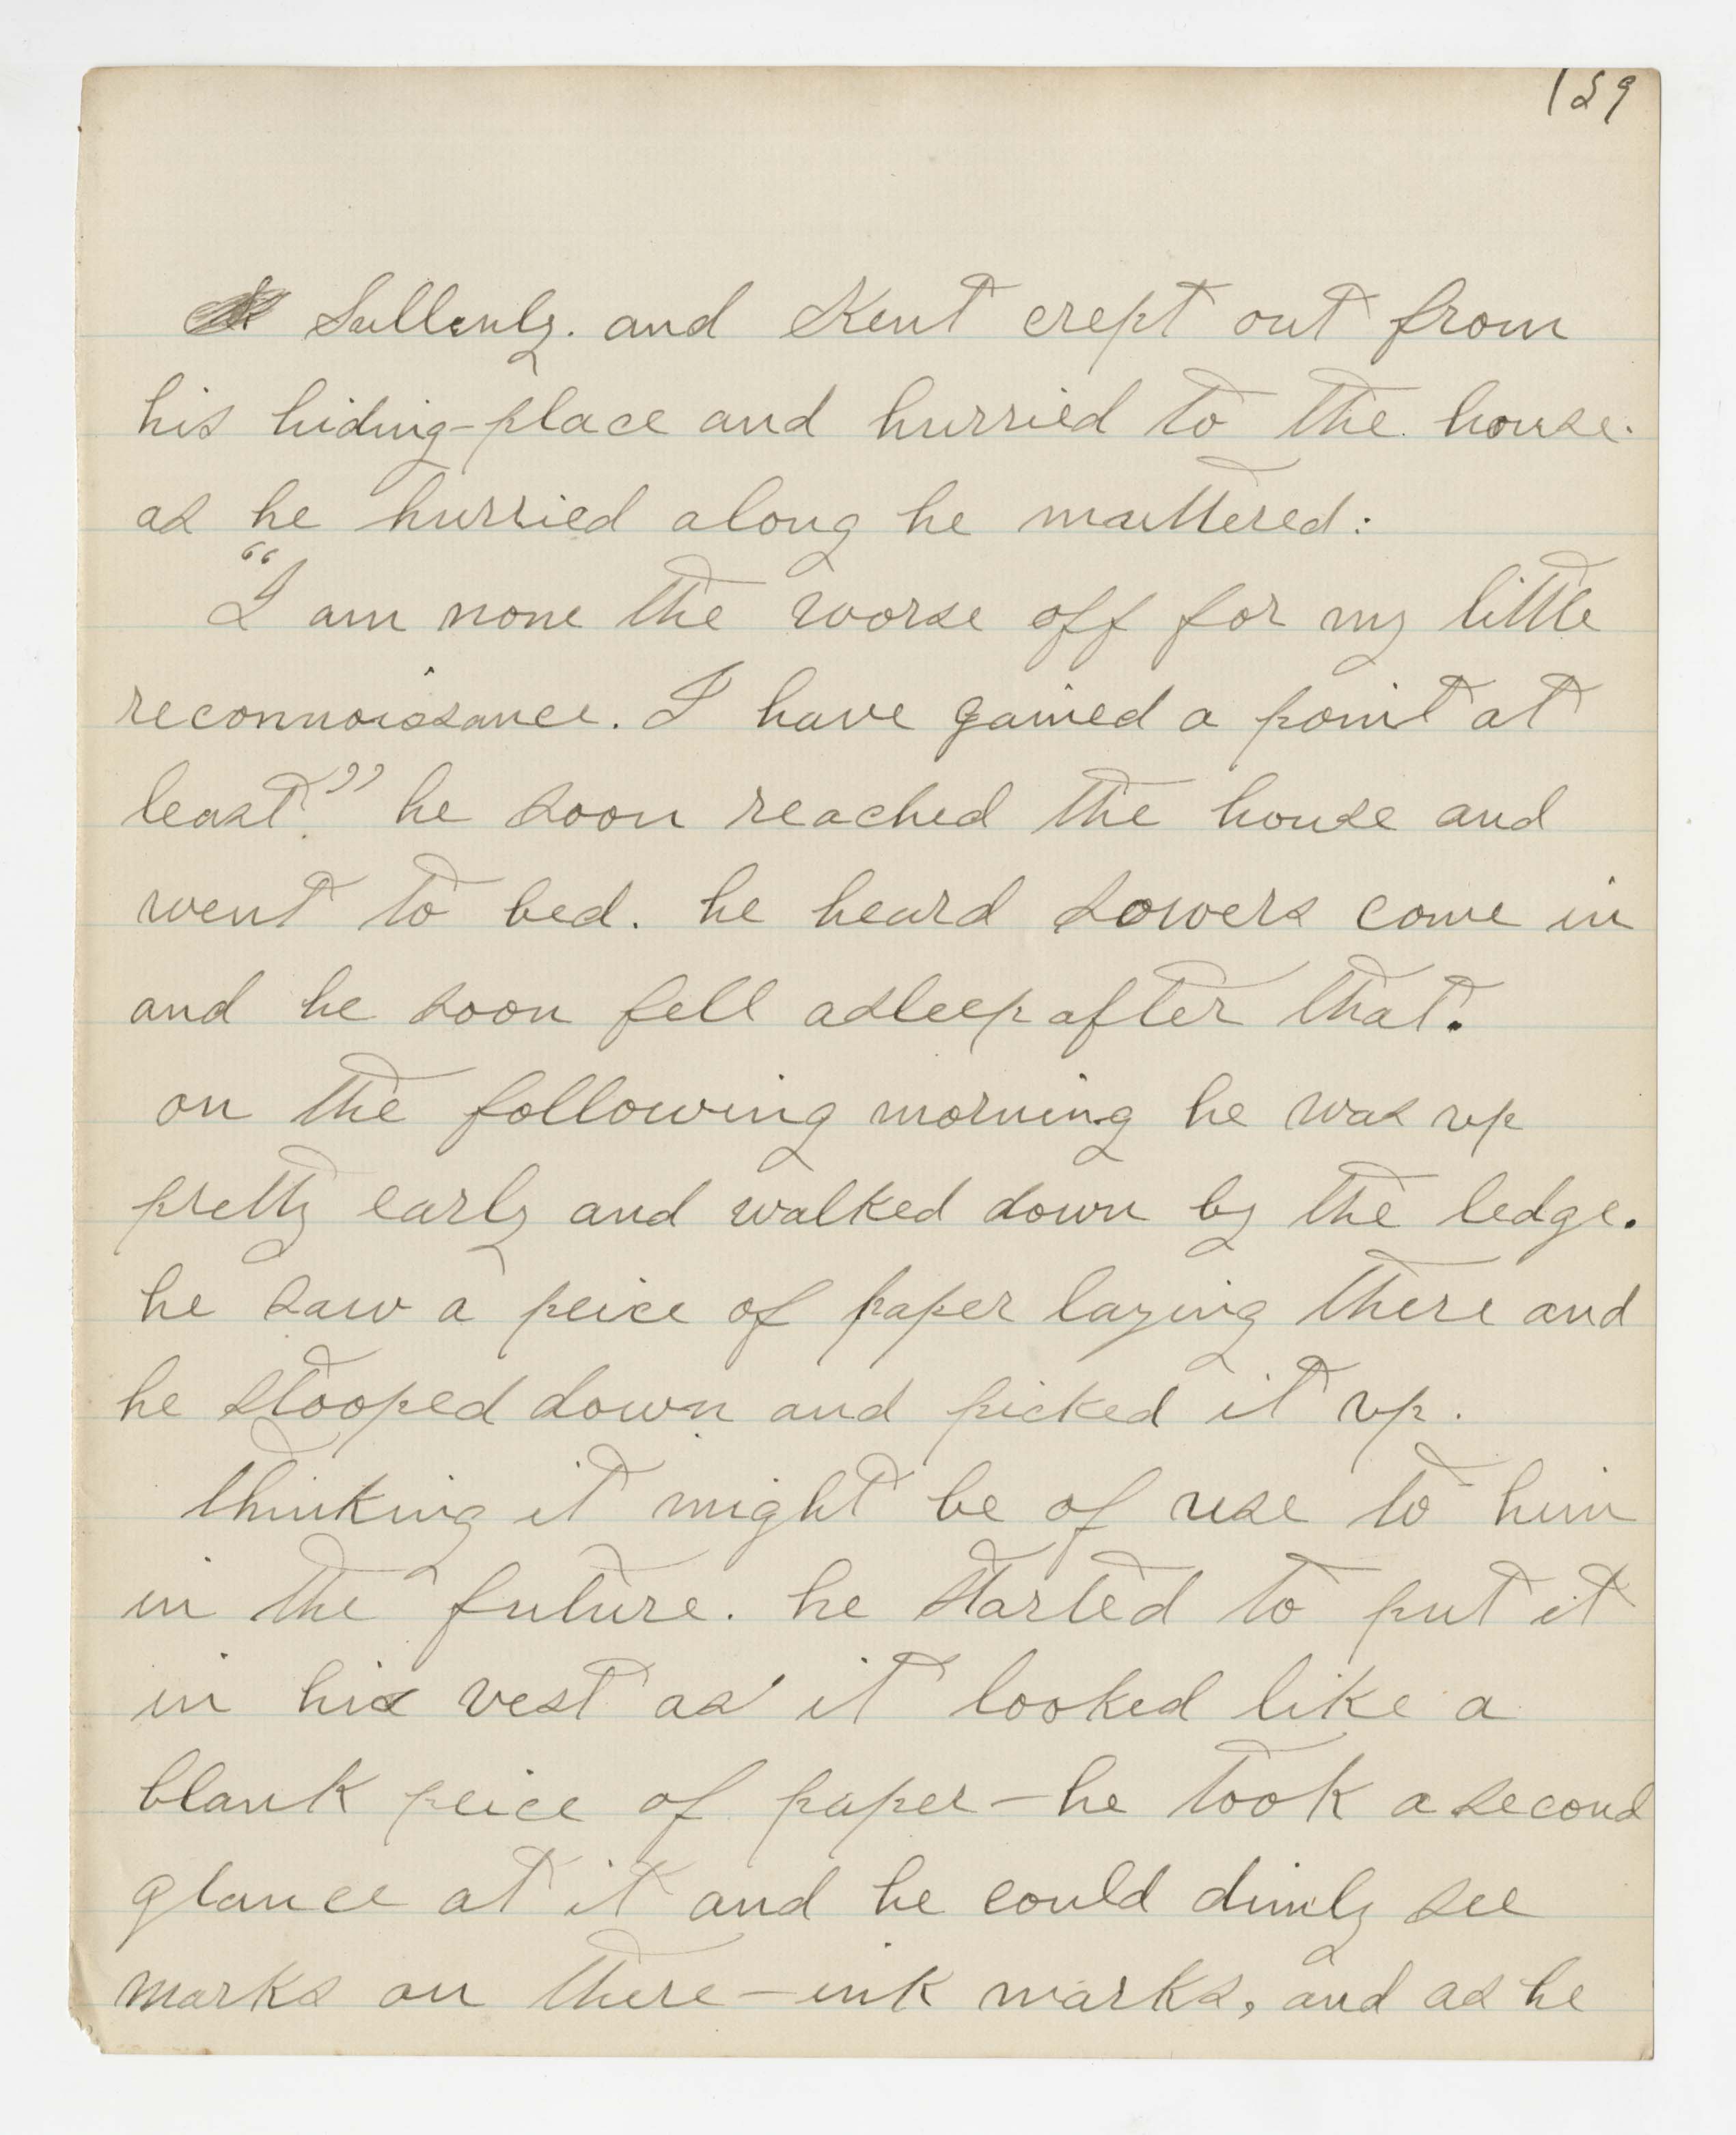 159
Sullenly. and Kent crept out from
his hiding-place and hurried to the house.
as he hurried along he muttered:
"I am none the worse off for my little
reconnoissance. I have gained a point at
least." he soon reached the house and
went to bed. he heard Sowers come in
and he soon fell asleep after that.
on the following morning he was up
pretty early and walked down by the ledge.
he saw a peice of paper laying there and
he stooped down and picked it up.
thinking it might be of use to him
in the future. he started to put it
in his vest as it looked like a
blank peice of paper – he took a second
glance at it and he could dimly see
marks on there – ink marks, and as he